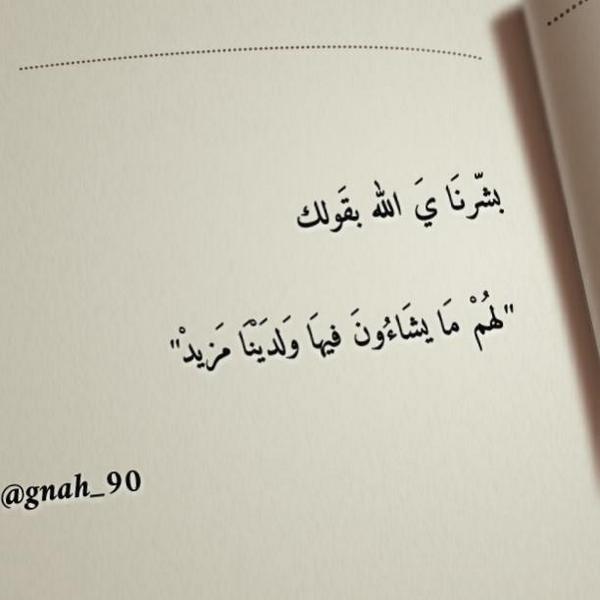 بشّرنَا يَ الله بقَولك
"لهُمْ مَا يشَاءُونَ فيهَا وَلدَيْنَا مَزيدْ"
@gnah_90